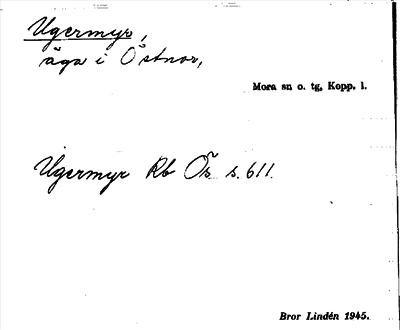 Ugermyr,
äga i Östnor,
Mora sn o. tg, Kopp. l.
Ugermyr Rb Ös s. 611.
Bror Lindén 1945.